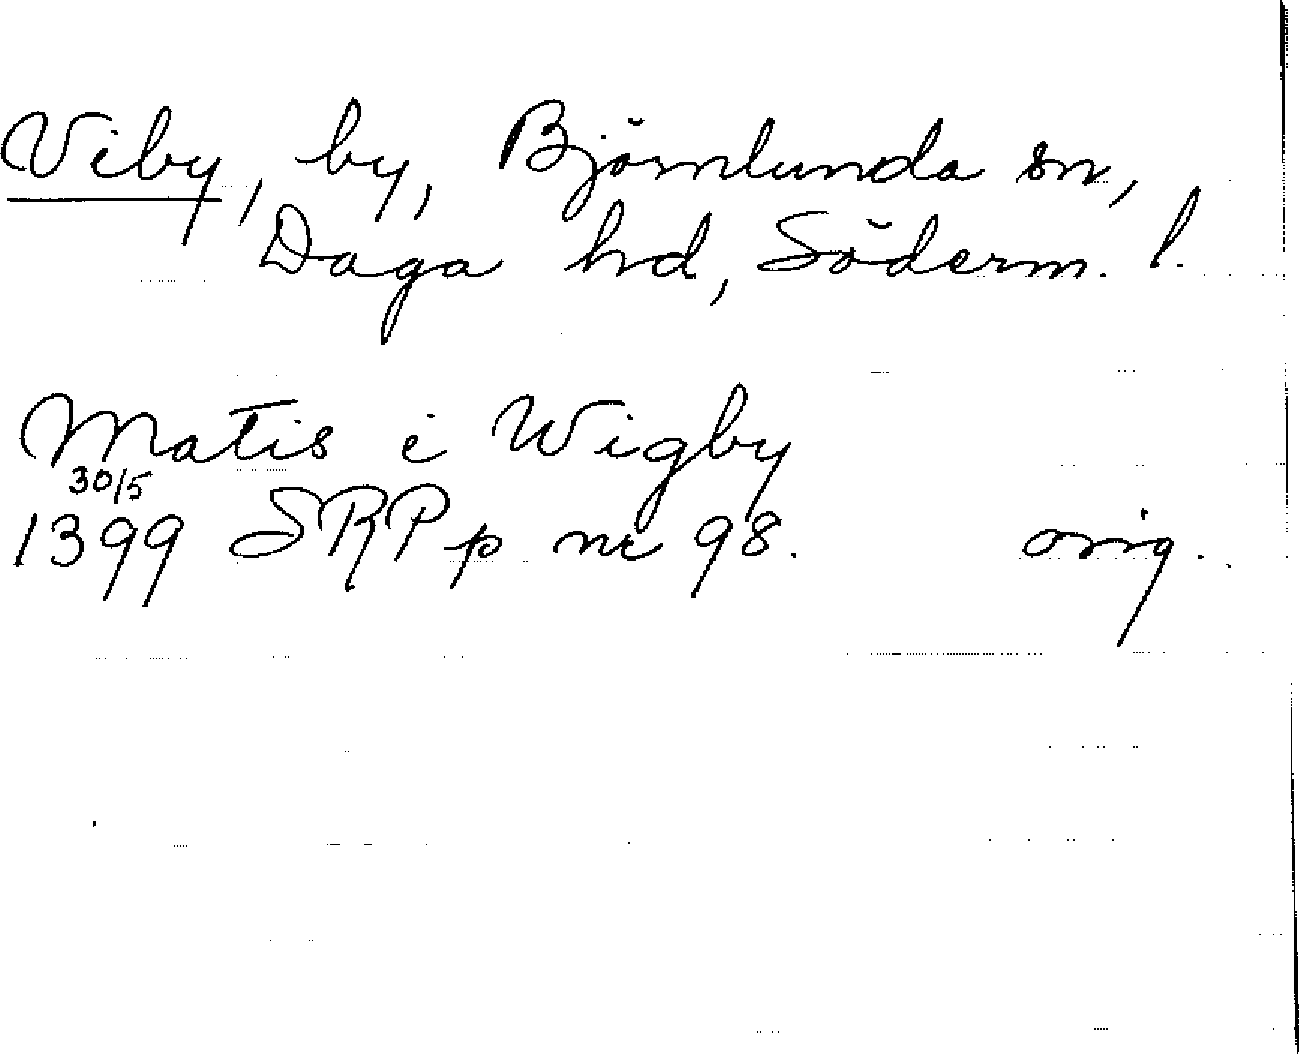 Viby, by, Björnlunda sn,
Daga hd, Söderm. l.
Matis i Wigby
30/5
1399 SRPp nr 98. orig.